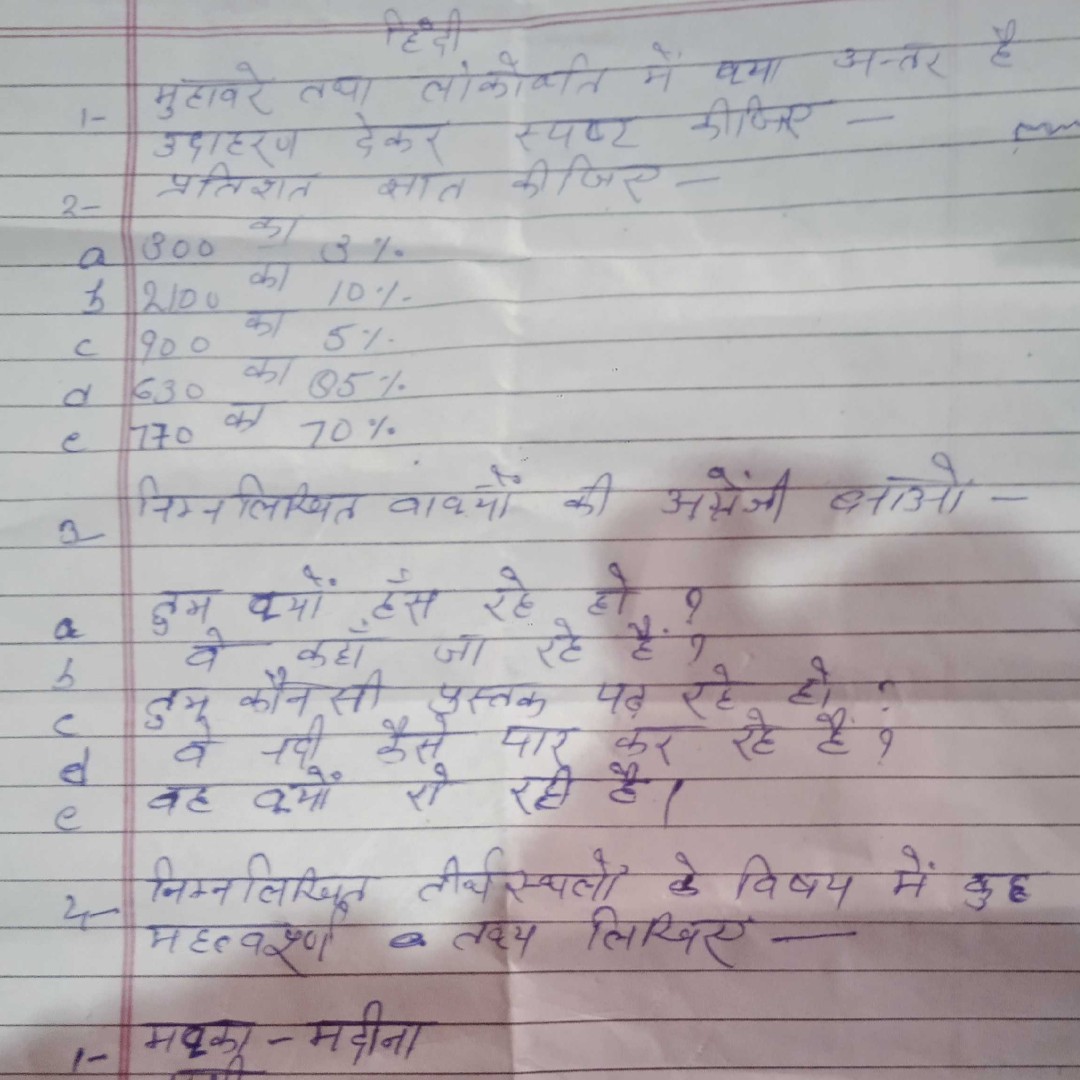 हिंदी
1- मुहावरे तथा लोकोक्ति में क्या अन्तर है
उदाहरण देकर स्पष्ट कीजिए —
2- प्रतिशत ज्ञात कीजिए —
a 300 का 3 %.
b 2100 का 10 %.
c 900 का 5 %.
d 630 का 5 %.
e 770 का 70 %.
3- निम्नलिखित वाक्यों की अंग्रेजी बनाओ —
a तुम क्यों हँस रहे हो ?
b वे कहाँ जा रहे हैं ?
c तुम कौन सी पुस्तक पढ़ रहे हो ?
d वे नदी कैसे पार कर रहे हैं ?
e वह क्यों रो रही है ।
4- निम्नलिखित तीर्थ स्थलों के विषय में कुछ
महत्वपूर्ण तथ्य लिखिए —
1- मक्का - मदीना